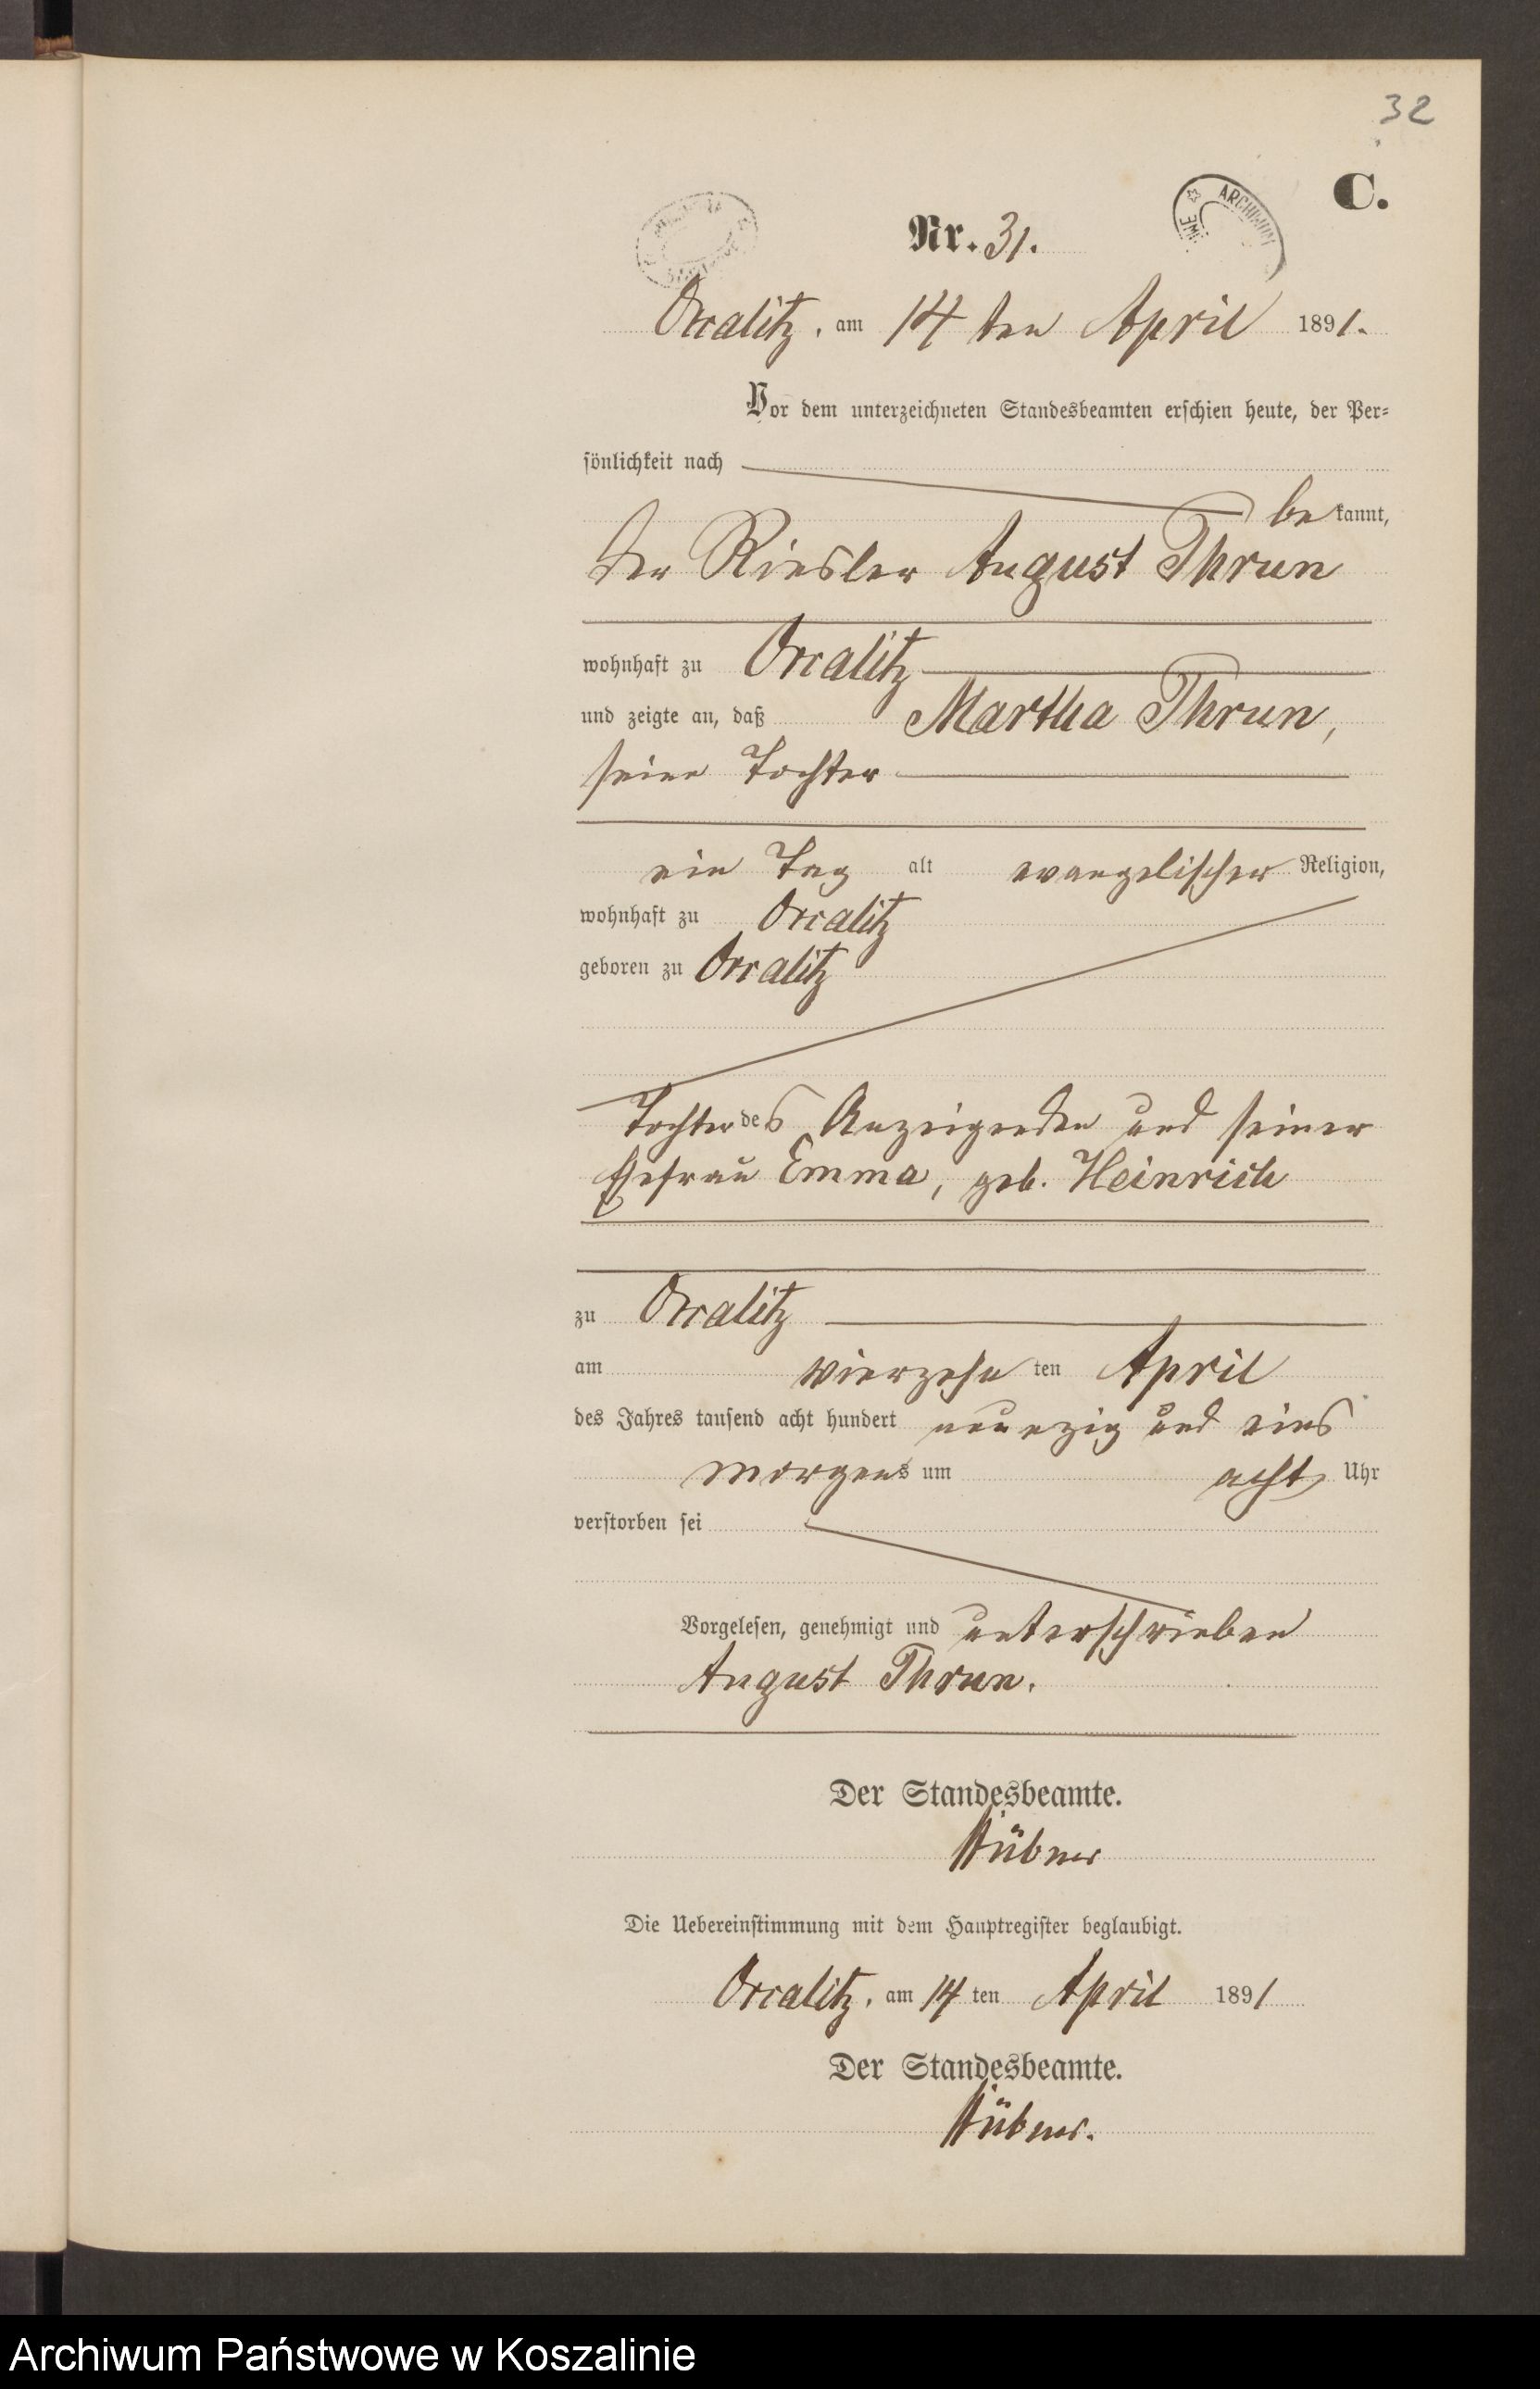 32
C.
ARCHIWUM
Nr. 31.
Orcalitz, am 14 ten April 1891.
Vor dem unterzeichneten Standesbeamten erschien heute, der Per-
sönlichkeit nach
bekannt,
der August Thrun
wohnhaft zu Orcalitz
und zeigte an, daß Martha Thrun,
seine Tochter
ein Tag alt evangelischer Religion,
wohnhaft zu Orcalitz
geboren zu Orcalitz
Tochter des Anzeigenden und seiner
Ehefrau Emma, geb. Heinrich
zu Orcalitz
am vierzehn ten April
des Jahres tausend acht hundert neunzig und eins
Morgens um acht Uhr
verstorben sei
Vorgelesen, genehmigt und unterschrieben
August Thrun.
Der Standesbeamte.
Die Uebereinstimmung mit dem Hauptregister beglaubigt.
Orcalitz, am 14 ten April 1891
Der Standesbeamte.
Archiwum Państwowe w Koszalinie